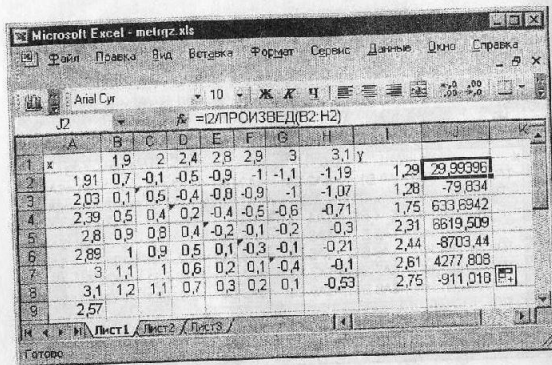 Microsoft Excel - metrgz.xls
Файл Правка Вид Вставка Формат Сервис Данные Окно Справка
Arial Cyr 10 Ж К Ч
J2 fx =I2/ПРОИЗВЕД(B2:H2)
A B C D E F G H I J K
1 x 1,9 2 2,4 2,8 2,9 3 3,1 y
2 1,91 0,7 -0,1 -0,5 -0,9 -1 -1,1 -1,19 1,29 29,99396
3 2,03 0,1 0,5 -0,4 -0,8 -0,9 -1 -1,07 1,28 -79,834
4 2,39 0,5 0,4 0,2 -0,4 -0,5 -0,6 -0,71 1,75 633,6942
5 2,8 0,9 0,8 0,4 -0,2 -0,1 -0,2 -0,3 2,31 6619,509
6 2,89 1 0,9 0,5 0,1 -0,3 -0,1 -0,21 2,44 -8703,44
7 3 1,1 1 0,6 0,2 0,1 -0,4 -0,1 2,61 4277,808
8 3,1 1,2 1,1 0,7 0,3 0,2 0,1 -0,53 2,75 -911,018
9 2,57
Лист1 Лист2 Лист3
Готово